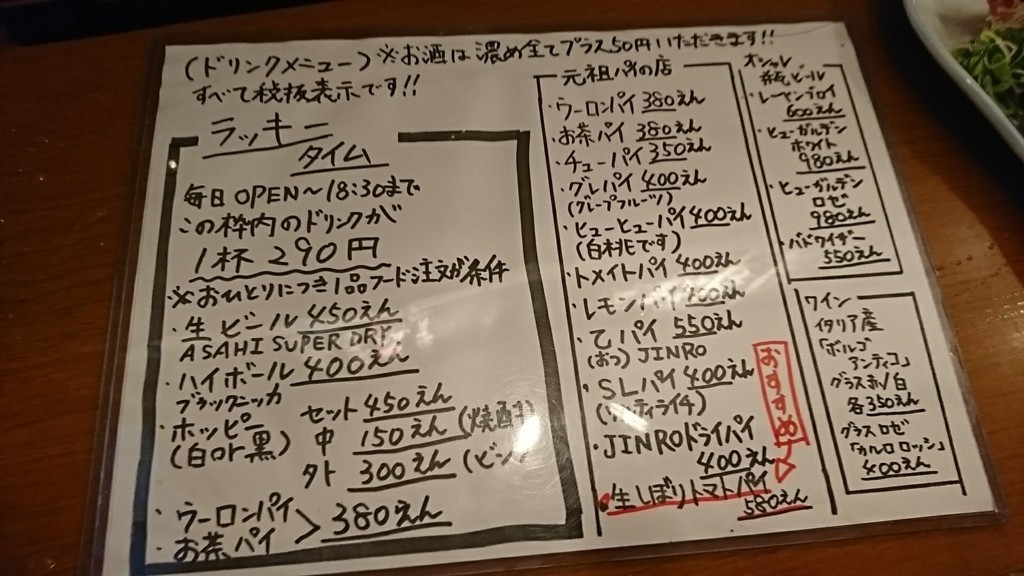 (ドリンクメニュー) ※お酒は濃め全てプラス50円いただきます!!
すべて税抜表示です!!
ラッキー
タイム
毎日OPEN〜18:30まで
この枠内のドリンクが
1杯290円
※おひとりにつき1品フード注文が条件
・生ビール 450えん
ASAHI SUPER DRY
・ハイボール 400えん
ブラックニッカ
・ホッピー セット 450えん
(白or黒) 中 150えん (焼酎)
外 300えん
・ウーロンパイ
・お茶パイ > 380えん
元祖パイの店
・ウーロンパイ 380えん
・お茶パイ 380えん
・チューパイ 350えん
・グレパイ 400えん
(グレープフルーツ)
・ヒューヒューパイ 400えん
(白桃です)
・トメイトパイ 400えん
・レモンパイ 400えん
・乙パイ 550えん
(おつ) JINRO
・SLパイ 400えん
・JINROドライパイ
400えん
おすすめ
・生しぼりトマトパイ
580えん
オシャレ
瓶ビール
・レーベンブロイ
600えん
・ヒューガルデン
ホワイト
980えん
・ヒューガルデン
ロゼ
980えん
・バドワイザー
550えん
ワイン
イタリア産
「ボルゴ
アンティコ」
グラス赤/白
各350えん
グラスロゼ
「カルロロッシ」
400えん